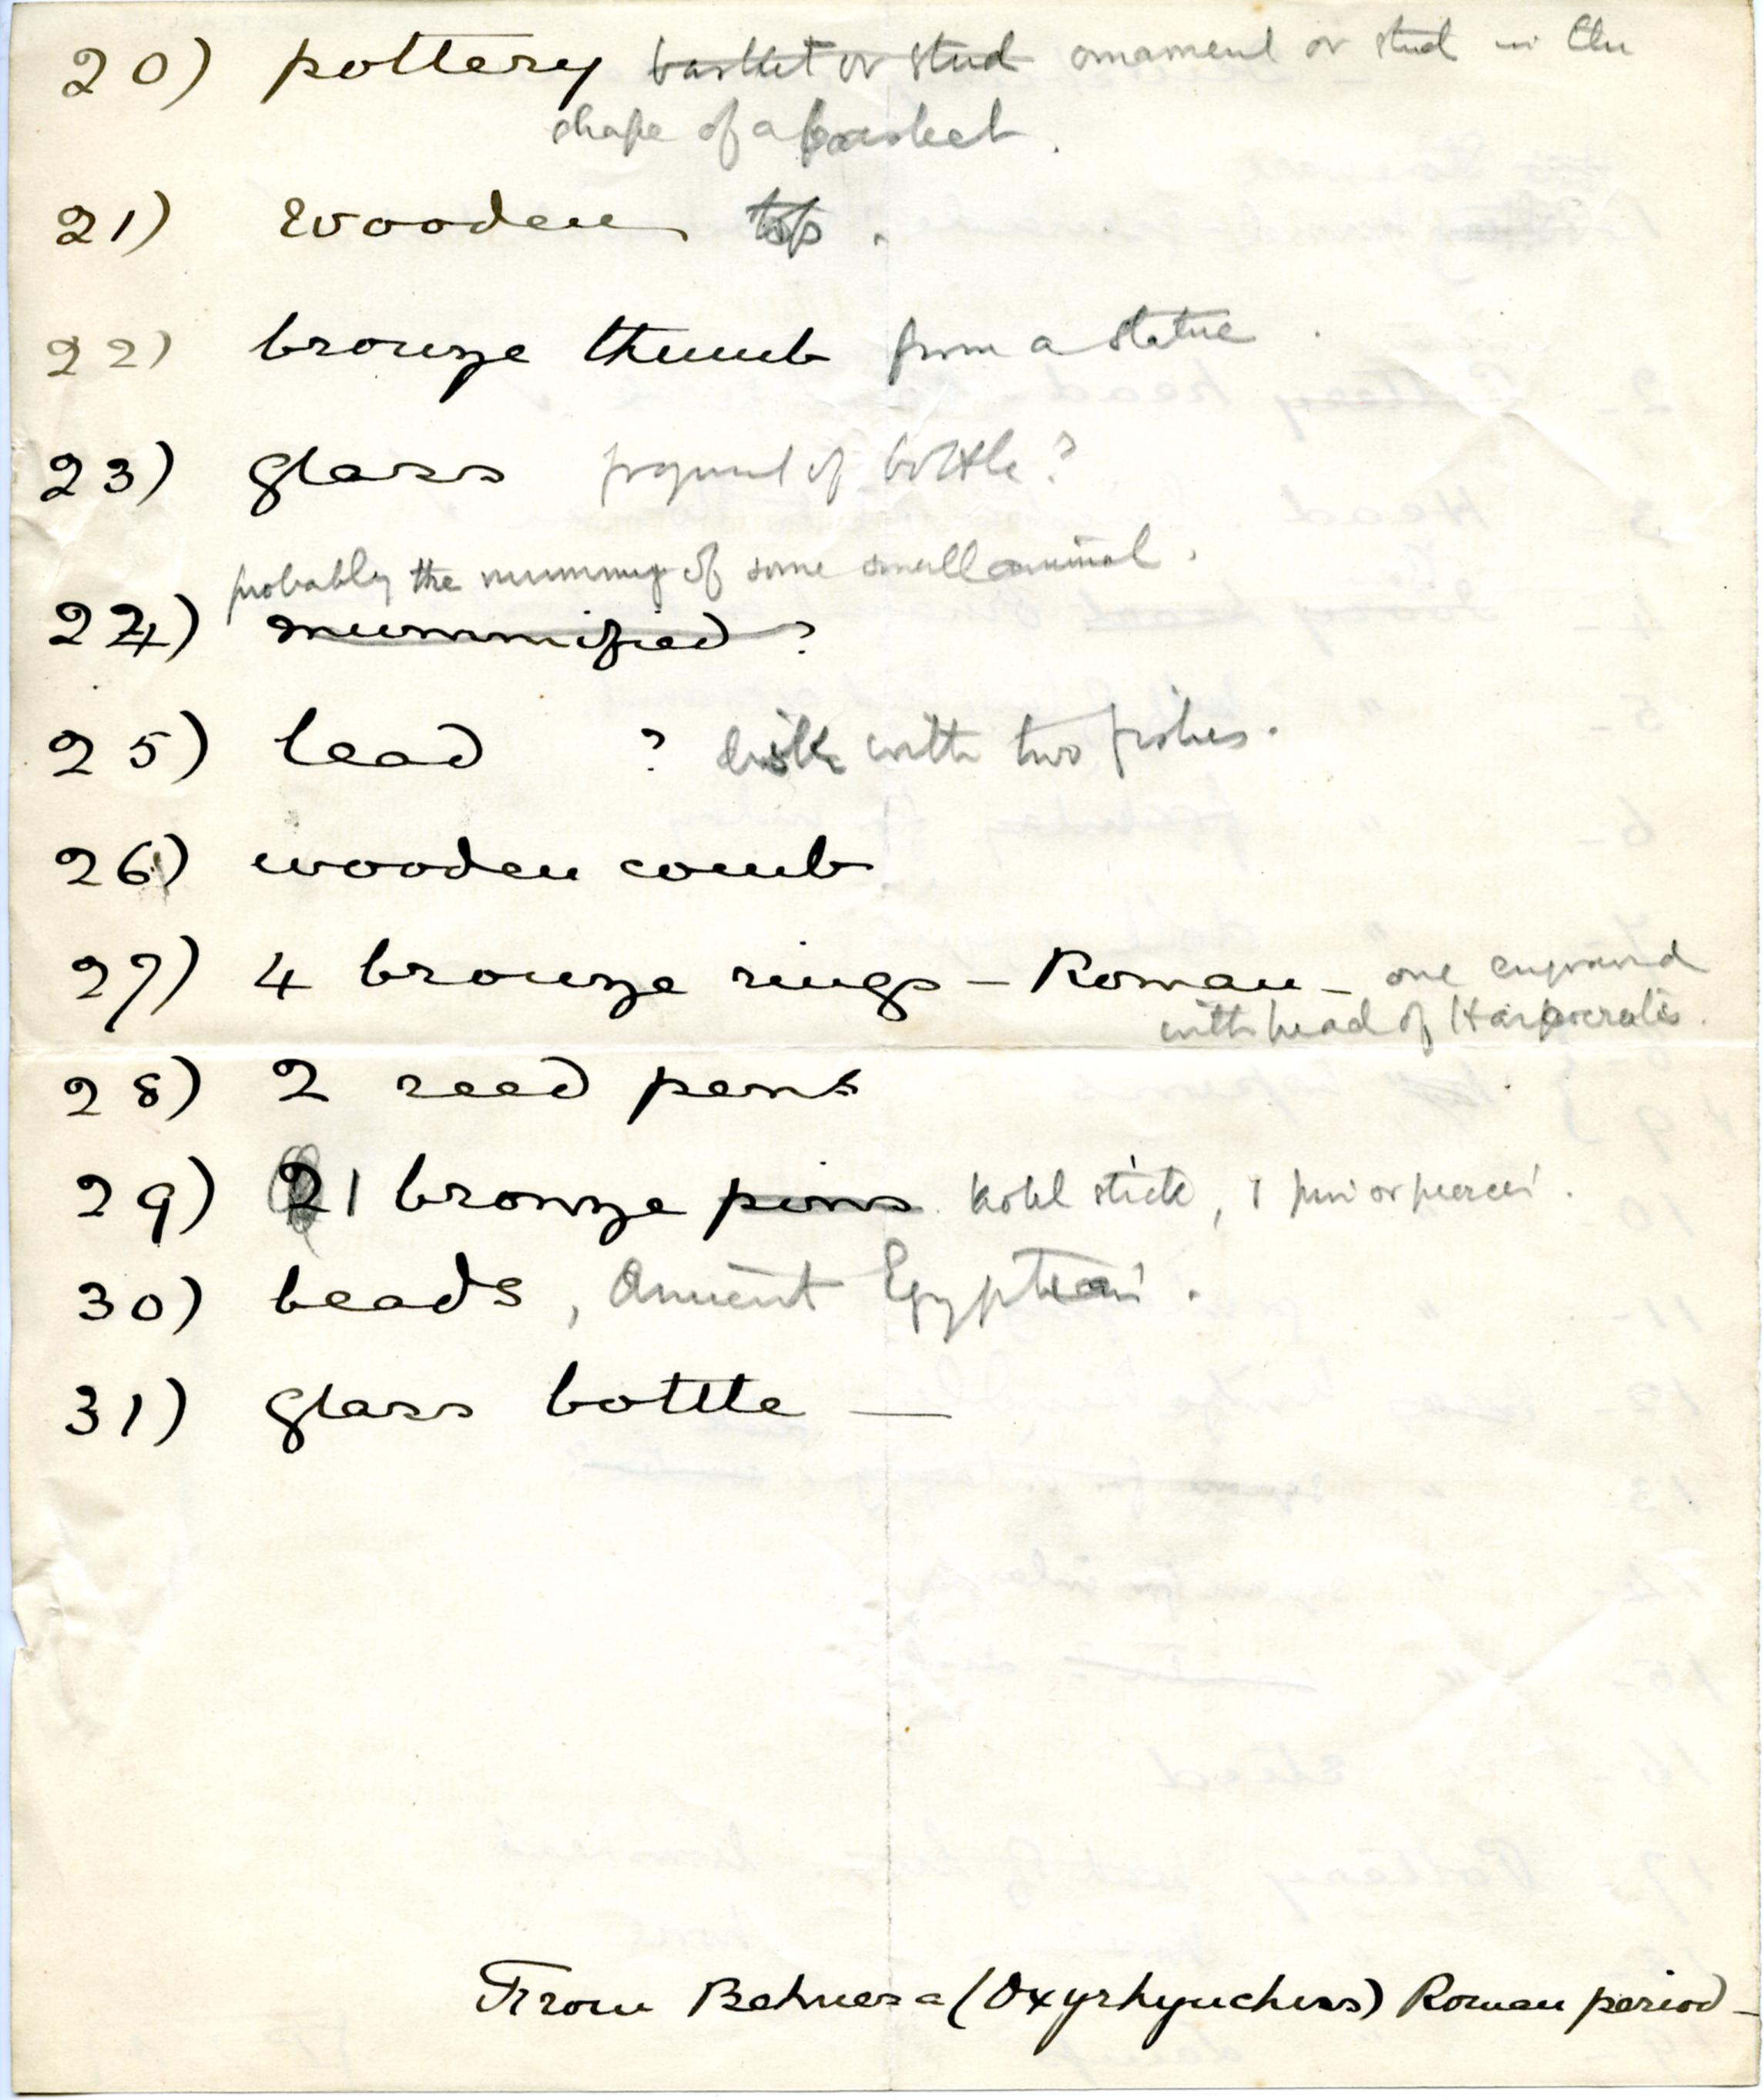 20) pottery basket or stud ornament or stud in the
shape of a basket.
21) wooden top.
22) bronze thumb from a statue.
23) glass fragment of bottle?
probably the mummy of some small animal.
24) mummified ?
25) lead ? disk with two fishes.
26) wooden comb.
27) 4 bronze rings – Roman – one engraved
with head of Harpocrates.
28) 2 reed pens
29) 21 bronze pins kohl stick, 1 pin or piercer.
30) beads, Ancient Egyptian.
31) glass bottle —
From Behnesa (Oxyrhynchus) Roman period –